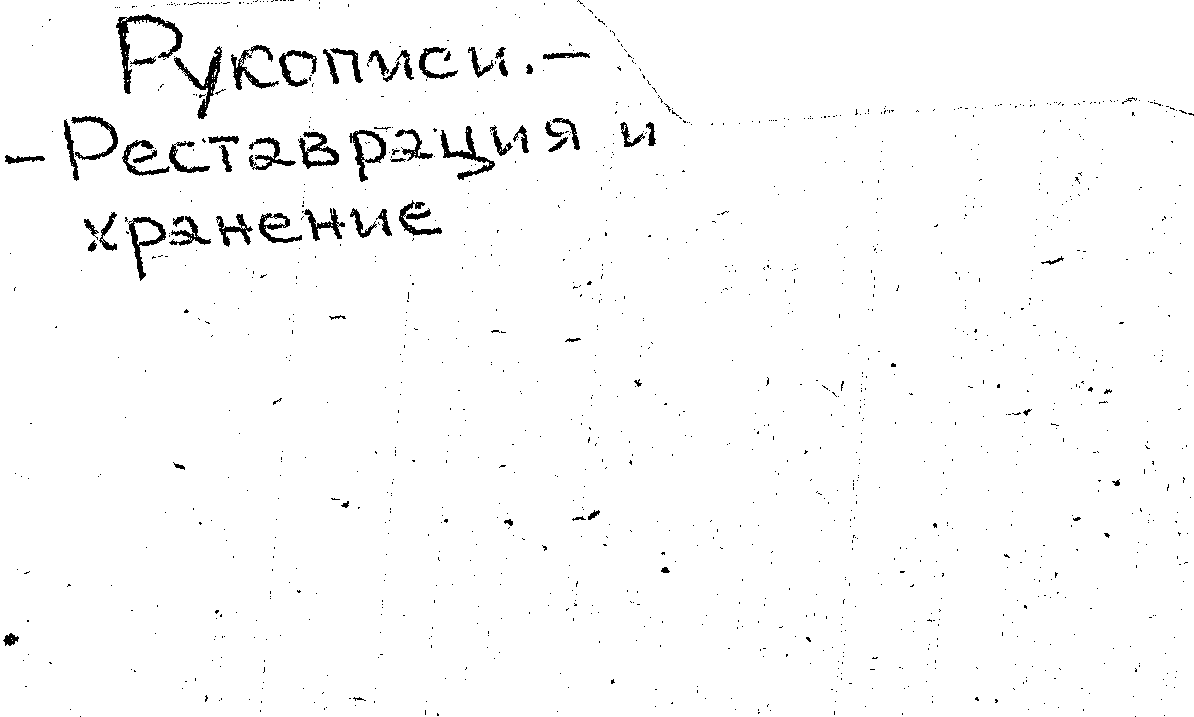 Рукописи.–
–Реставрация и
хранение